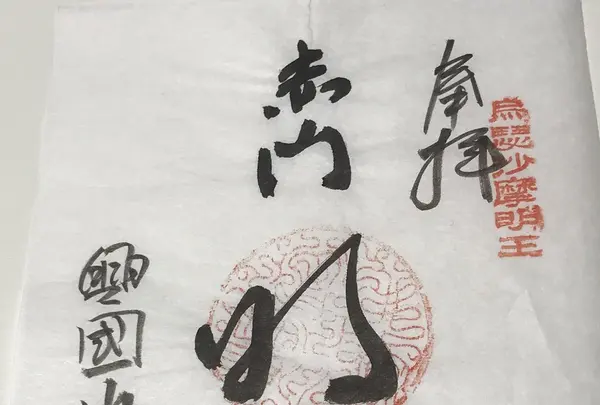 奉拝
烏瑟沙摩明王
赤門
興國